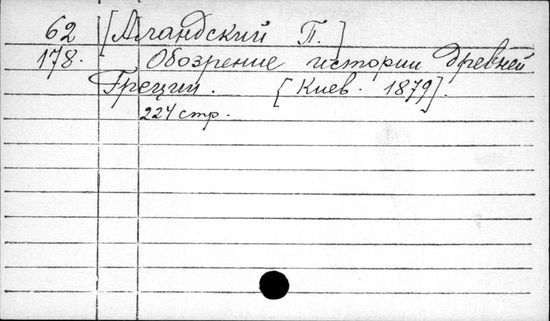 62 [Аландский П.]
178. Обозрение истории древней
Греции. [Киев. 1879].
224 стр.